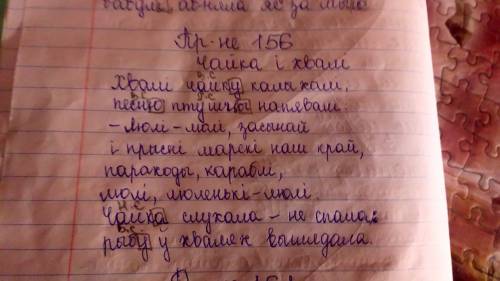 бабулі, абняла яе за шыю
Пр-не 156
Чайка і хвалі
Хвалі чайку калыхалі,
песню птушчы напявалі:
-Люлі-люлі, засынай
і прысні марскі наш край,
параходы, караблі,
люлі, люленькі-люлі.
Чайка слухала - не спала:
рыбу ў хвалях выглядала.